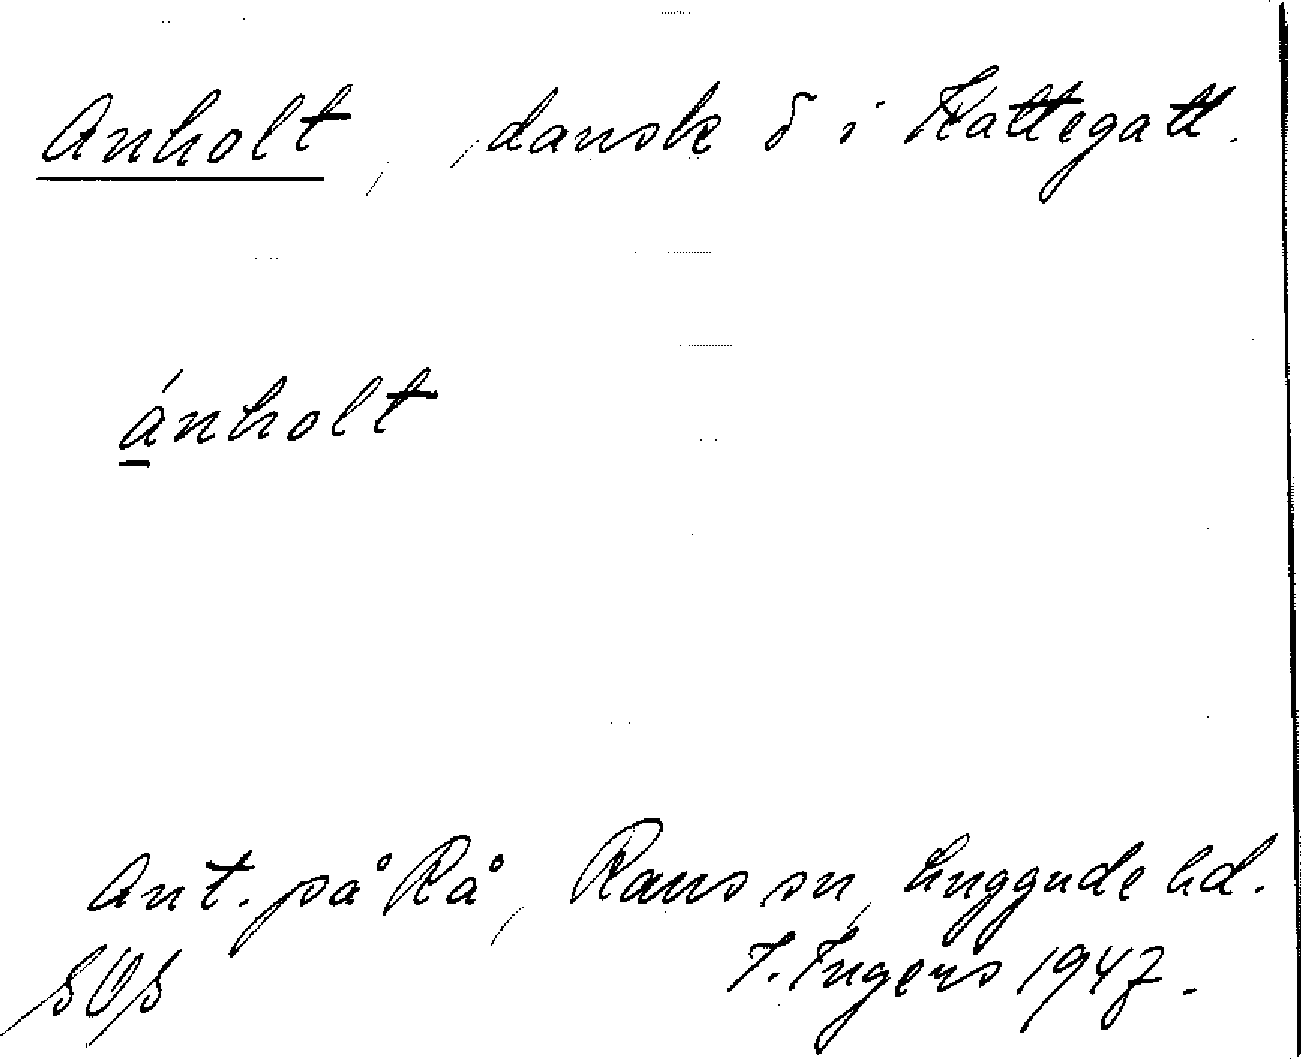 Anholt, dansk ö i Kattegatt.
ánholt
Ant. på Rå, Raus sn, Luggude hd.
I. Ingers 1947.
SOS